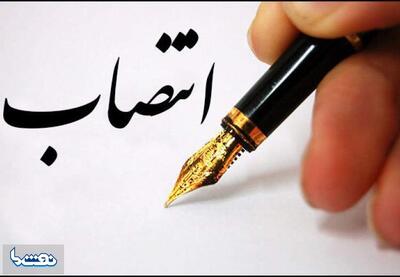 انتصاب
نفت‌ما